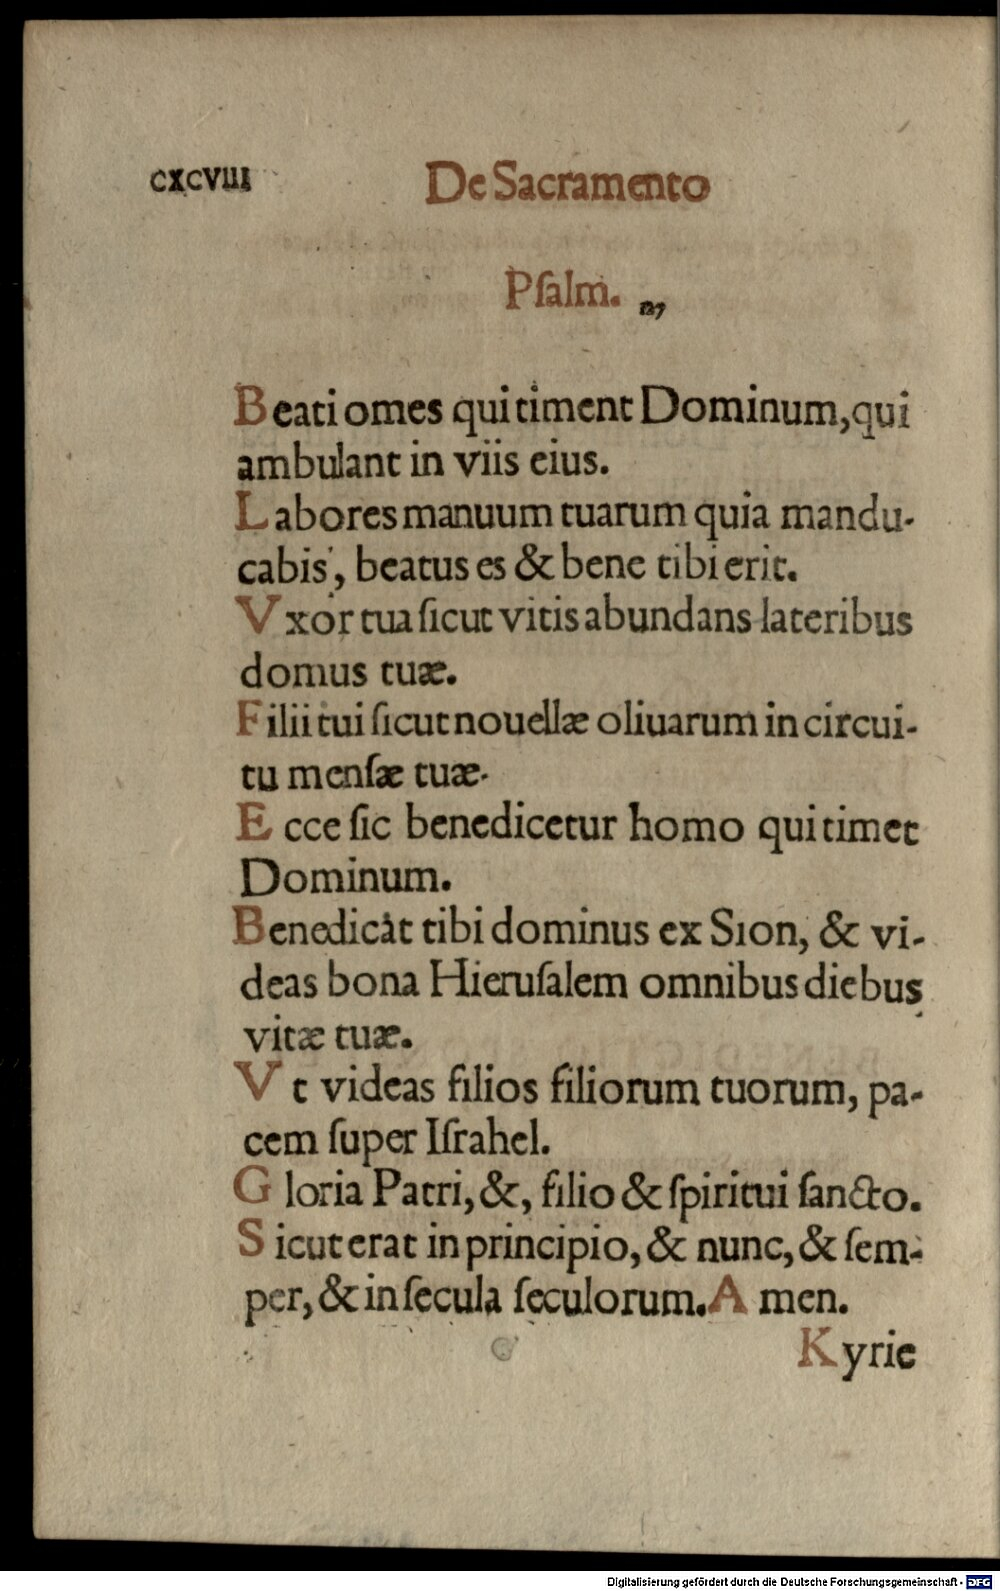 CXCVIII De Sacramento
Pſalm. 127
Beati omes qui timent Dominum, qui
ambulant in viis eius.
Labores manuum tuarum quia mandu-
cabis, beatus es & bene tibi erit.
Vxor tua ſicut vitis abundans lateribus
domus tuæ.
Filii tui ſicut nouellæ oliuarum in circui-
tu menſæ tuæ.
Ecce ſic benedicetur homo qui timet
Dominum.
Benedicat tibi dominus ex Sion, & vi-
deas bona Hieruſalem omnibus diebus
vitæ tuæ.
Vt videas filios filiorum tuorum, pa-
cem ſuper Iſrahel.
Gloria Patri, &, filio & ſpiritui ſancto.
Sicut erat in principio, & nunc, & ſem-
per, & in ſecula ſeculorum. Amen.
Kyrie
Digitalisierung gefördert durch die Deutsche Forschungsgemeinschaft - DFG